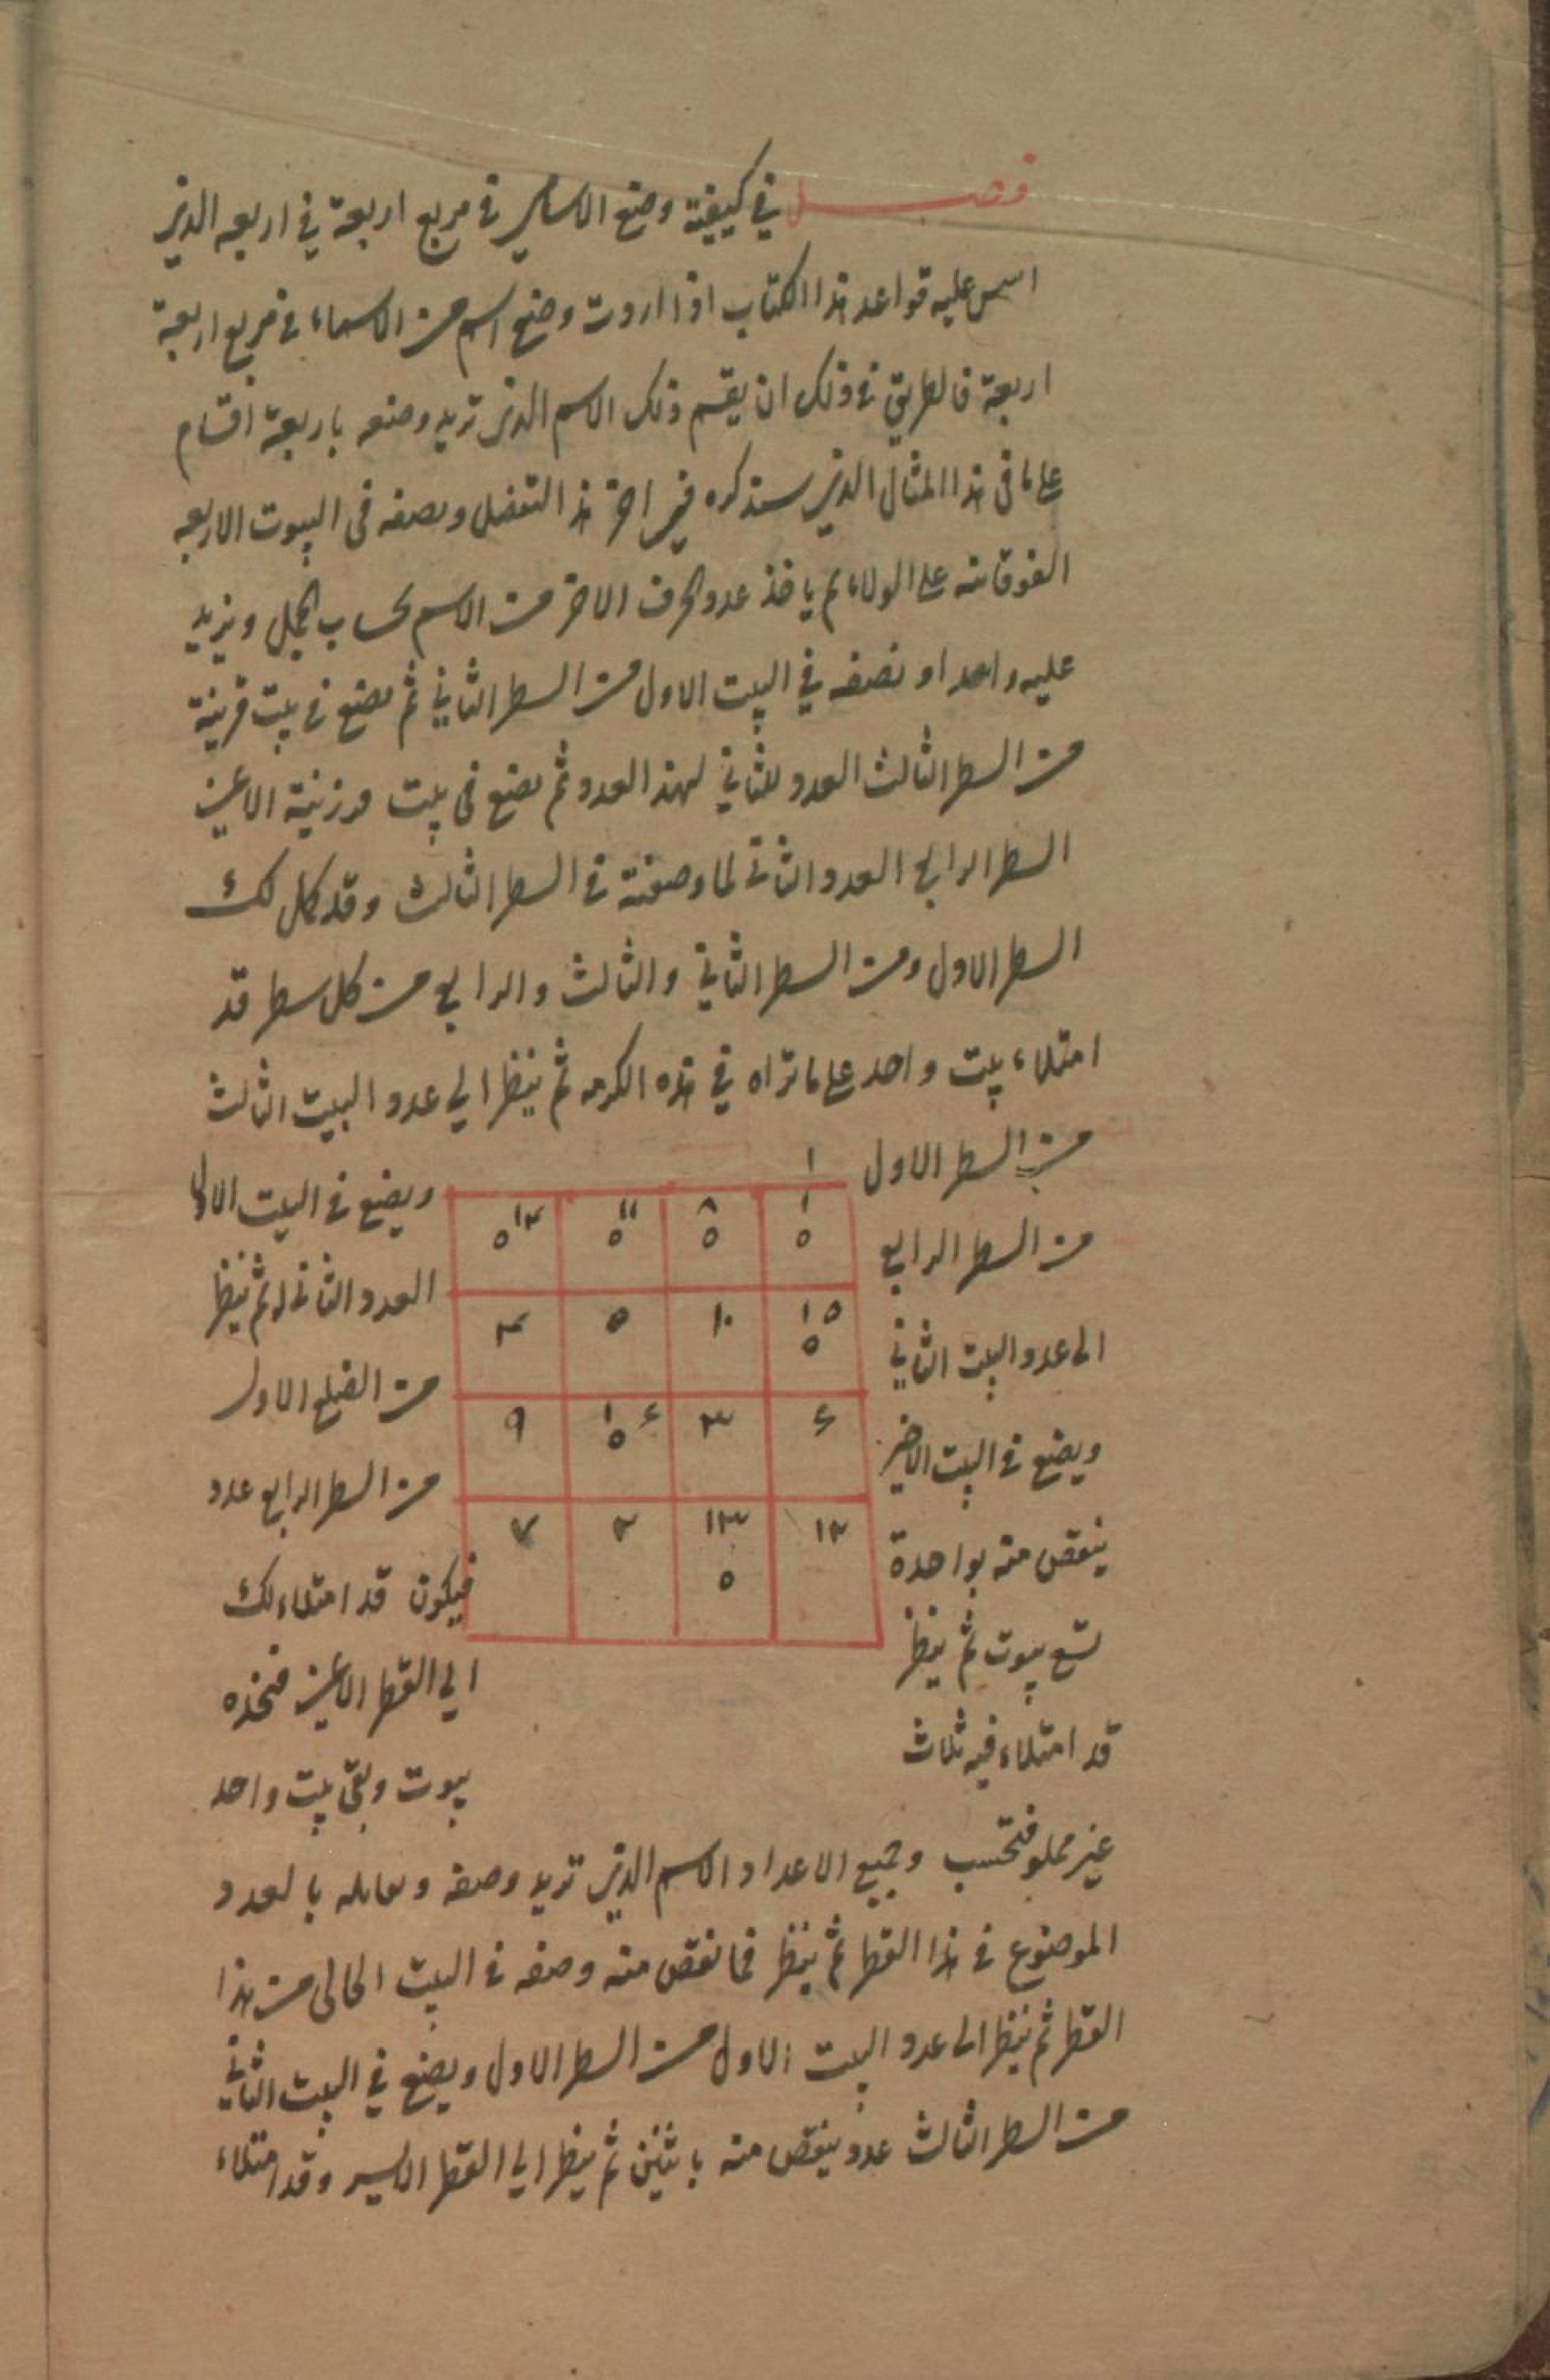 فصل في كيفية وضع الاسامي في مربع اربعة في اربعه الذي
اسس عليه قواعد هذا الكتاب اذا اردت وضع اسم من الاسماء في مربع اربعة
اربعة فالطريق في ذلك ان يقسم ذلك الاسم الذي تريد وضعه باربعة اقسام
على ما في هذا المثال الذي سنذكره في اخر هذا الفصل ويضعه في البيوت الاربعه
الفوقانيه على الولاء ثم ياخذ عدد الحرف الاخر من الاسم بحساب الجمل ويزيد
عليه واحدا و نضعه في البيت الاول من السطر الثاني ثم يضع في بيت قرينة
من السطر الثالث العدد الثاني لهذا العدد ثم يضع في بيت فرزنية الايمن
السطر الرابع العدد الثاني لما وضعته في السطر الثالث وقد كمل لك
السطر الاول ومن السطر الثاني والثالث والرابع من كل سطر قد
امتلاء بيت واحد على ما تراه في هذه الكرمه ثم ينظر الي عدد البيت الثالث
من السطر الاول ويضع في البيت الاول
من السطر الرابع العدد الثاني له ثم ينظر
الى عدد البيت الثاني من الضلع الاول
ويضع في البيت الاخير من السطر الرابع عدد
ينقص منه بواحدة فيكون قد امتلاء لك
تسع بيوت ثم ينظر الي القطر الايمن فتجده
قد امتلاء فيه ثلاث بيوت وبقي بيت واحد
١
١ ٥ ٨ ٥ ١١ ٥ ١٤ ٥
١٥ ٥ ١٠ ٥ ٤
٦ ٣ ١٦ ٥ ٩
١٢ ١٣ ٥ ٢ ٧
غير مملو فتحسب وجميع الاعداد الاسم الذي تريد وضعه وتقابله بالعدد
الموضوع في هذا القطر ثم ينظر فما نقص منه وضعه في البيت الخالى من هذا
القطر ثم ينظر الى عدد البيت الاول من السطر الاول ويضع في البيت الثاني
من السطر الثالث عدد ينقص منه باثنين ثم ينظر الي القطر الايسر وقد امتلاء